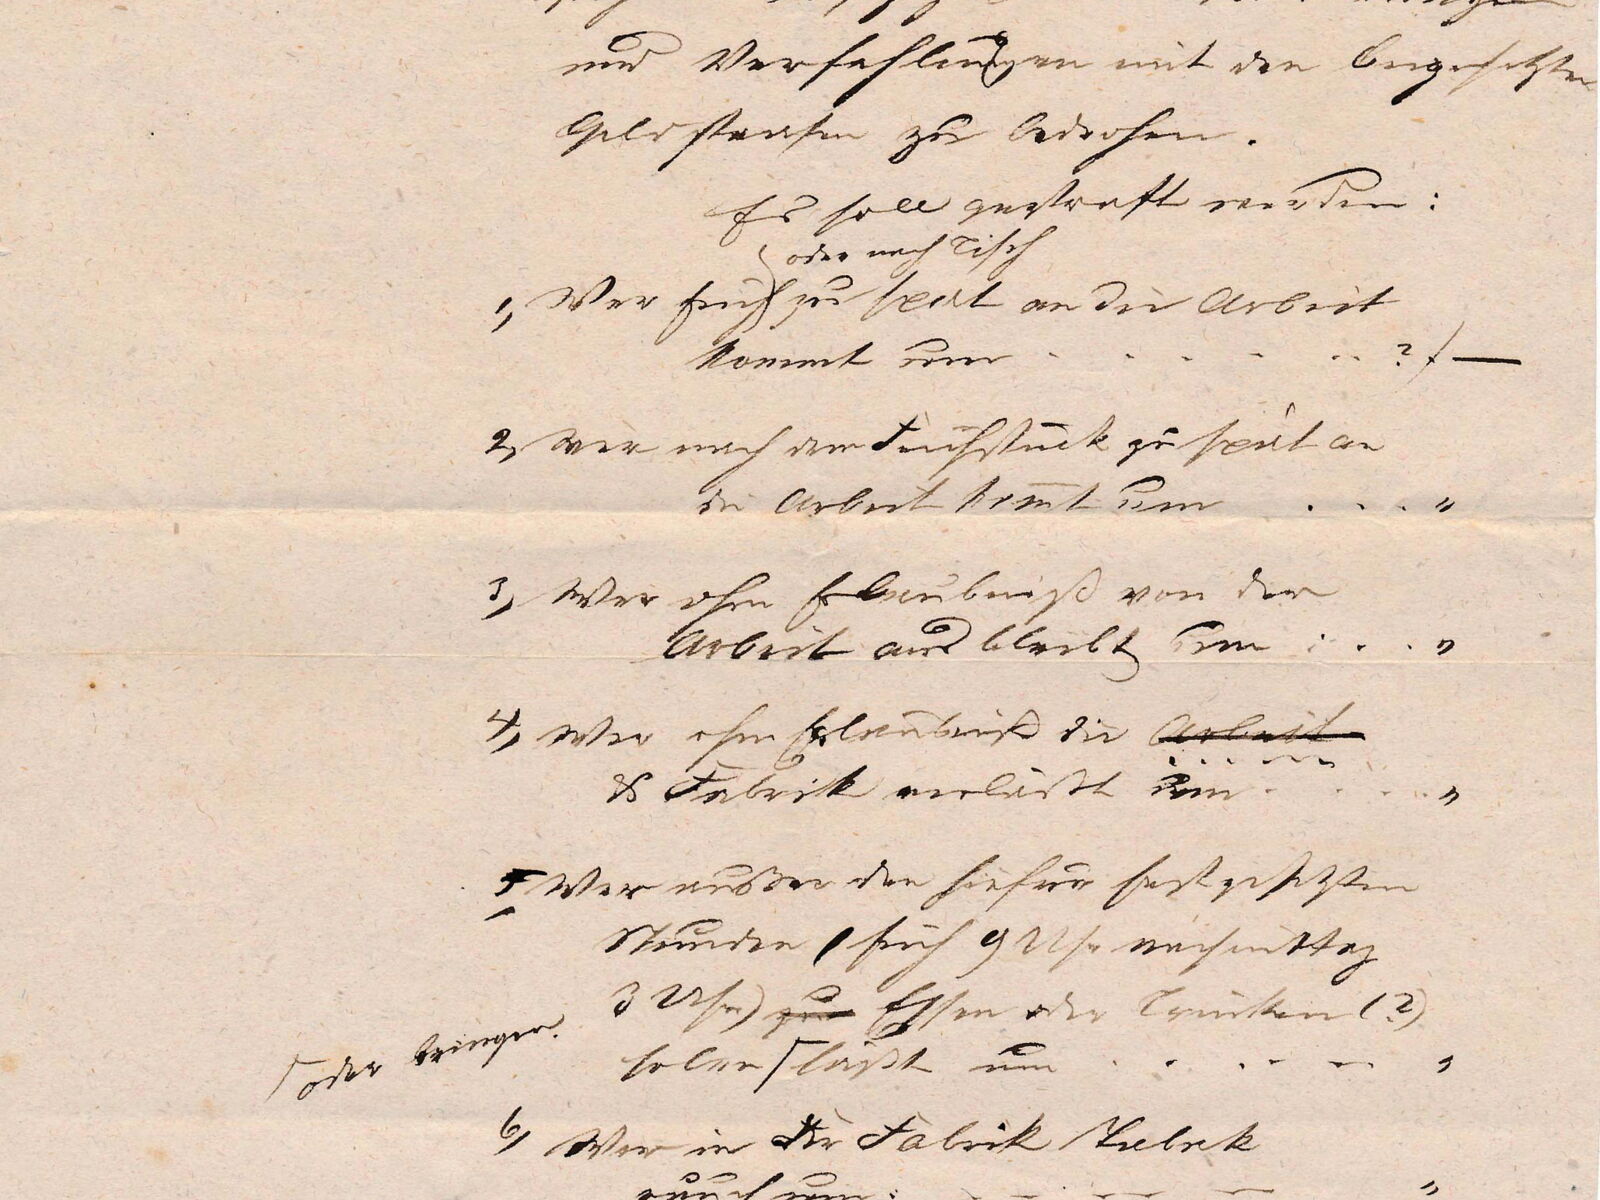 und Verfehlungen mit den beigesetzten
Geldstrafen zu bedrohen.
Es soll gestraft werden:
oder nach Tisch
1, Wer früh zu spät an die Arbeit
kommt um . . . . . . ? f —
2, Wer nach dem Frühstück zu spät an
die Arbeit kom̅t um . . . "
3, Wer ohne Erlaubniß von der
Arbeit aus bleibt um . . . "
4, Wer ohne Erlaubniß die Arbeit
& Fabrik verläßt um . . . . "
5, Wer außer den hiefür festgesetzten
Stunden (früh 9 Uhr nachmittag
3 Uhr) zu Essen oder Trinken (?)
holen ⌈ läßt um . . . . "
⌈ oder bringen.
6, Wer in der Fabrik Tabak
raucht um . . . . "